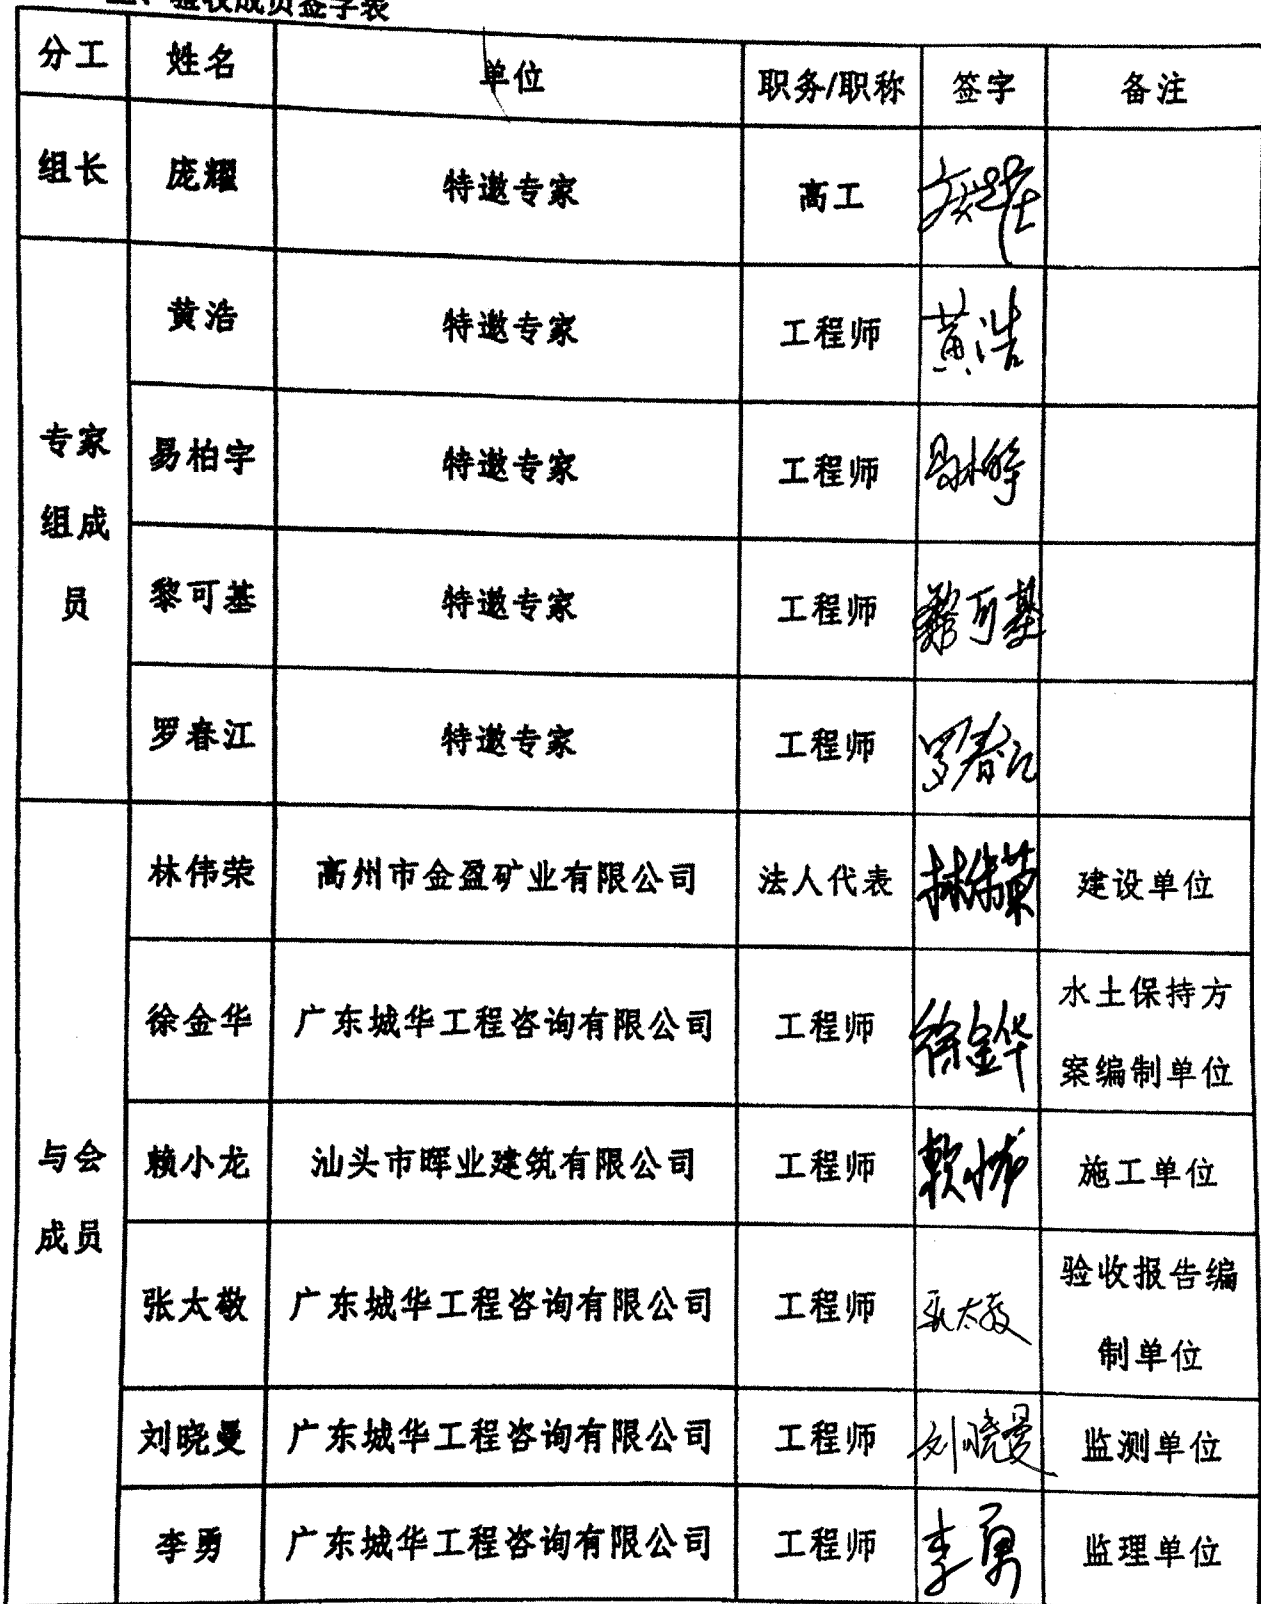 验收成员签字表
分工 姓名 单位 职务/职称 签字 备注
组长 庞耀 特邀专家 高工
专家组成员
黄浩 特邀专家 工程师 黄浩
易柏宇 特邀专家 工程师 易柏宇
黎可基 特邀专家 工程师 黎可基
罗春江 特邀专家 工程师 罗春江
与会成员
林伟荣 高州市金盈矿业有限公司 法人代表 林伟荣 建设单位
徐金华 广东城华工程咨询有限公司 工程师 徐金华 水土保持方
案编制单位
赖小龙 汕头市晖业建筑有限公司 工程师 赖小龙 施工单位
张太敬 广东城华工程咨询有限公司 工程师 张太敬 验收报告编
制单位
刘晓曼 广东城华工程咨询有限公司 工程师 刘晓曼 监测单位
李勇 广东城华工程咨询有限公司 工程师 李勇 监理单位